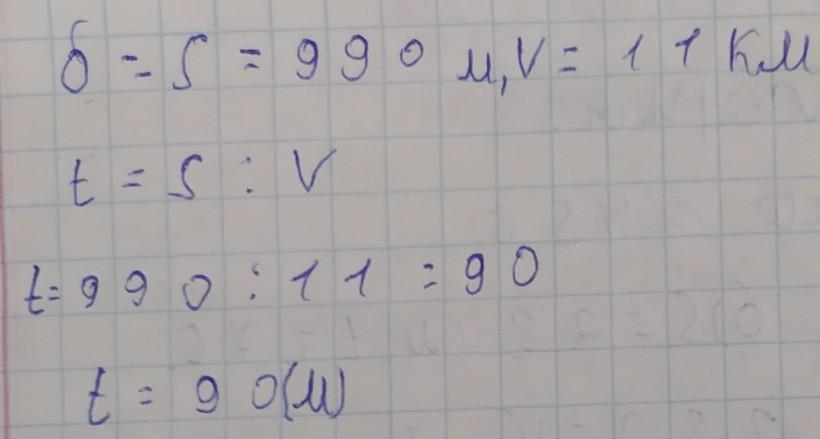 б = S = 990 м, V = 11 км
t = S : V
t = 990 : 11 = 90
t = 90(м)